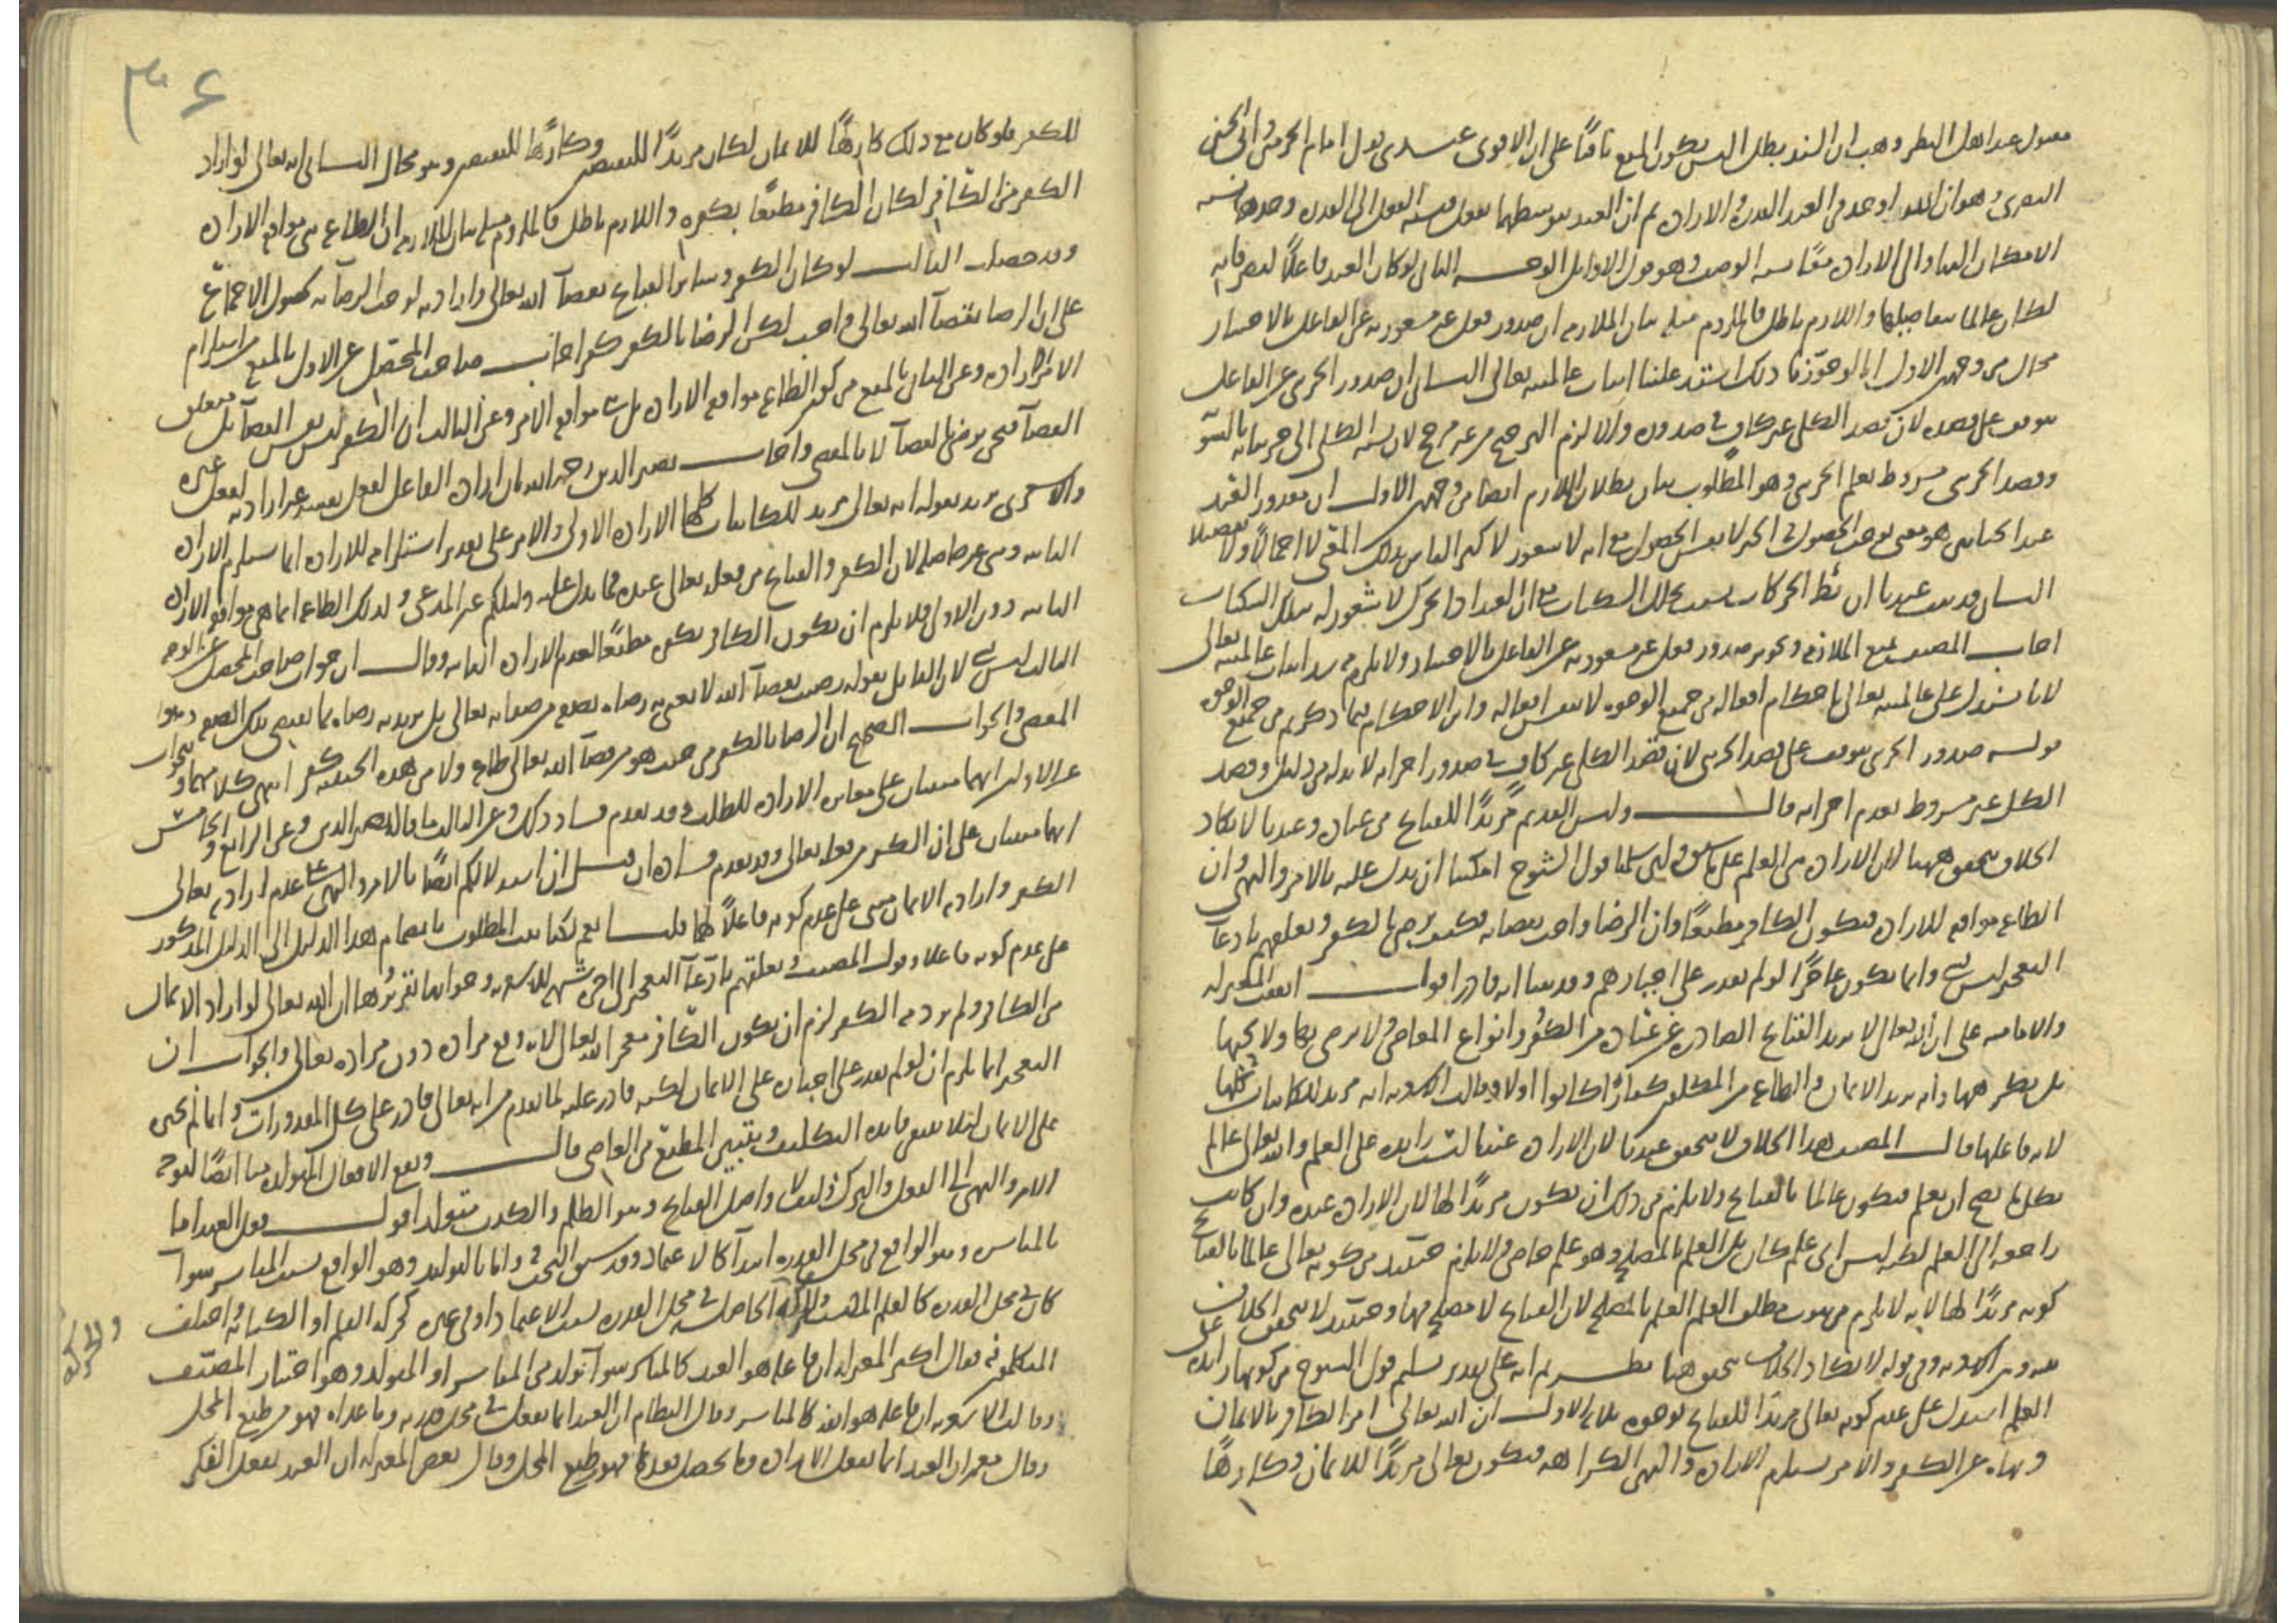 مقبول عند اهل النظر وهب ان السند بطل اليس يكون المنع باقيًا على ان الاقوى عندى قول امام الحرمين وابى الحسين
البصرى وهو ان الله اوجد فى العبد القدرة والارادة ثم ان العبد بتوسطهما يفعل فنسبة الفعل الى القدرة وحدها نسبة
الامكان والى الارادة نسبة الوجوب وهو قول الاوائل الوجه الثانى لو كان العبد فاعلًا لتصرفاته
لكان عالما بتفاصيلها واللازم باطل فالملزوم مثله بيان الملازمة ان صدور فعل غير مشعور به عن الفاعل بالاختيار
محال من وجهين الاول انا لو جوزنا ذلك انسد علينا اثبات عالميته تعالى الثانى ان صدور الجزئى عن الفاعل
يتوقف على قصده لان قصد الكلى غير كافٍ فى صدوره والا لزم الترجيح من غير مرجح لان نسبة الكلى الى جزئياته بالسوية
وقصد الجزئى مشروط بعلم الجزئى وهو المطلوب بيان بطلان اللازم ايضا من وجهين الاول ان مقدور العبد
عند الجبائين هو معنى يوجب الحصول فى الحيز لا نفس الحصول مع انه لا شعور لاكثر الناس بذلك المعنى لا اجمالًا ولا تفصيلا
الثانى قد ثبت عندنا ان بطؤ الحركات بسبب تخلل السكنات مع ان العبد اذا تحرك لا شعور له بتلك السكنات
اجاب المصنف بمنع الملازمة وتجويز صدور فعل غير مشعور به عن الفاعل بالاختيار ولا يلزم سد اثبات عالميته تعالى
لانا نستدل على عالميته تعالى باحكام افعاله من جميع الوجوه لا بنفس افعاله واين الاحكام فيما ذكرتم من جميع الوجوه
قوله صدور الجزئى يتوقف على قصد الجزئى لان قصد الكلى غير كافٍ فى صدور اجزائه لا بد له من دليل وقصد
الكل غير مشروط بعدم اجزائه قال وليس القديم مريدًا للقبائح من عباده وعندنا لا يكاد
الخلاف يتحقق ههنا لان الارادة هى العلم على ما سبق ولئن سلمنا قول الشيوخ امكننا ان نستدل عليه بالامر والنهى وان
الطاعة موافقة للارادة فيكون الكافر مطيعًا وان الرضا واجب بقضائه فكيف يرضى بالكفر وتعلقهم بادعآء
التعجيز ليس بشئ وانما يكون عاجزًا لو لم يقدر على اجبارهم وقد بينا انه قادر اقول اتفقت المعتزلة
والامامية على ان الله تعالى لا يريد القبائح الصادرة عن عباده من الكفر وانواع المعاصى ولا يرضى بها ولا يحبها
بل يكرهها وانه يريد الايمان والطاعة من المكلفين كفارًا كانوا او لا وقالت الاشعرية انه مريد للكائنات كلها
لانه فاعلها قال المصنف هذا الخلاف لا يتحقق عندنا لان الارادة عندنا ليست زايدة على العلم والله تعالى عالم
بكل ما يصح ان يعلم فيكون عالما بالقبائح ولا يلزم من ذلك ان يكون مريدًا لها لان الارادة عنده وان كانت
راجعة الى العلم لكن ليس اى علم كان بل العلم بالمصلحة وهو علم خاص فلا يلزم حينئذ من كونه تعالى عالما بالقبائح
كونه مريدًا لها لانه لا يلزم من ثبوت مطلق العلم العلم بالمصلحة لان القبائح لا مصلحة فيها وحينئذ لا يتحقق الخلاف
بيننا وبين الاشعرية وفى قوله لا يكاد الخلاف يتحقق ههنا نظر ثم انه على تقدير تسليم قول الشيوخ من كونها زايدة على
العلم استدل على عدم كونه تعالى مريدًا للقبائح بوجوه ثلاثة الاول ان الله تعالى امر الكافر بالايمان
ونهاه عن الكفر والامر يستلزم الارادة والنهى الكراهة فيكون تعالى مريدًا للايمان وكارهًا
٣٦
للكفر فلو كان مع ذلك كارهًا للايمان لكان مريدًا للنقيضين وكارهًا للنقيضين وهو محال الثانى انه تعالى لو اراد
الكفر من الكافر لكان الكافر مطيعًا بكفره واللازم باطل فالملزوم مثله بيان الملازمة ان الطاعة هى موافقة الارادة
وقد حصلت الثالث لو كان الكفر وسائر القبائح بقضآء الله تعالى وارادته لوجب الرضآء به لحصول الاجماع
على ان الرضا بقضآء الله تعالى واجب لكن الرضا بالكفر كفر اجاب صاحب المحصل عن الاول بالمنع من استلزام
الامر الارادة وعن الثانى بالمنع من كون الطاعة موافقة الارادة بل هى موافقة الامر وعن الثالث ان الكفر ليس نفس القضآء بل متعلق
القضآء فنحن نرضى بالقضآء لا بالمقضى واجاب نصير الدين رحمه الله بان ارادة الفاعل لفعل نفسه غير ارادته لفعل غيره
والاشعرى يريد بقوله انه تعالى مريد للكائنات كلها الارادة الاولى والامر على تقدير استلزامه للارادة انما يستلزم الارادة
الثانية وهى غير حاصلة لان الكفر والقبائح من فعله تعالى عنده فما يدل عليه دليلكم غير المدعى ولذلك الطاعة انما هى موافقة الارادة
الثانية دون الاولى فلا يلزم ان يكون الكافر بكفره مطيعًا لعدم الارادة الثانية وقال ان جواب صاحب المحصل عن الوجه
الثالث ليس بشئ لان القائل بقوله رضيت بقضآء الله لا يعنى به رضاه بصفة من صفاته تعالى بل يريد به رضاه بما يقتضى تلك الصفة وهو
المقضى والجواب الصحيح ان الرضا بالكفر من حيث هو من قضآء الله تعالى طاعة ولا من هذه الحيثية كفر انتهى كلامهما والجواب
عن الاولين انهما مبنيان على مغايرة الارادة للطلب وقد تقدم فساد ذلك وعن الثالث ما قاله نصير الدين وعن الرابع والخامس
انهما مبنيان على ان الكفر من فعله تعالى وقد تقدم فساده فان قيل ان استدلالكم ايضًا بالامر والنهى على عدم ارادته تعالى
الكفر وارادته الايمان مبنى على عدم كونه فاعلًا لهما قلنا نعم لكنا نثبت المطلوب بانضمام هذا الدليل الى الدليل المذكور
على عدم كونه فاعلا وقول المصنف وتعلقهم بادعآء التعجيز الى آخره شبهة للاشعرية وجوابها تقريرها ان الله تعالى لو اراد الايمان
من الكافر ولم يرد منه الكفر لزم ان يكون الكافر معجزًا لله تعالى لانه وقع مراده دون مراده تعالى والجواب ان
التعجيز انما يلزم ان لو لم يقدر على اجباره على الايمان لكنه قادر عليه لما تقدم من انه تعالى قادر على كل المقدورات وانما لم يجبره
على الايمان لئلا تنتفى فايدة التكليف ويتبين المطيع من العاصى قال وتقع الافعال المتولدة منا ايضًا لتوجه
الامر والنهى الى الفعل والترك واصل القبائح وهو الظلم والكذب متولد اقول فعل العبد اما
بالمباشرة وهو الواقع فى محل القدرة ابتدآءً كالاعتماد وقد سبق البحث واما بالتوليد وهو الواقع بسبب المباشر سوآء
كان فى محل القدرة كالعلم والحركة الحاصلة فى محل القدرة بسبب الاعتماد او فى غيره كحركة القلم او الكتابة واختلف
والحركة
المتكلمون فقال اكثر المعتزلة ان فاعله هو العبد كالمباشر سوآء تولد من المباشر او المتولد وهو اختيار المصنف
وقالت الاشعرية ان فاعله هو الله كالمباشر وقال النظام ان العبد انما يفعل فى محل قدرته وما عداه فهو من طبع المحل
وقال معمر ان العبد انما يفعل الارادة وما يحصل بعدها فهو من طبع المحل وقال بعض المعتزلة ان العبد يفعل الفكر